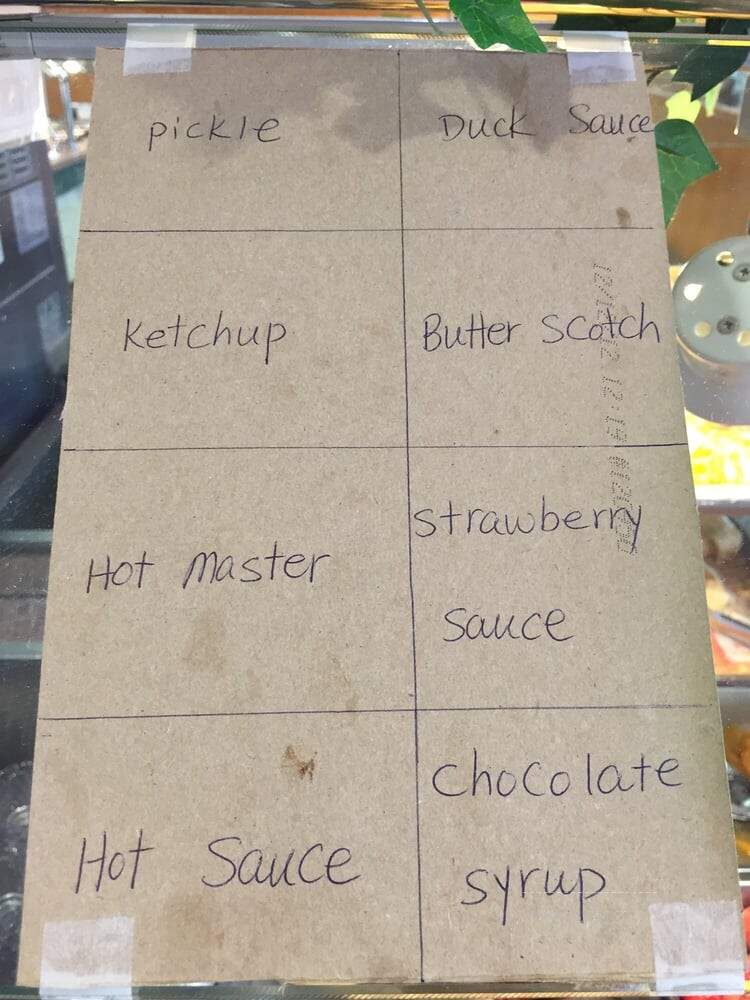 pickle
Duck Sauce
Ketchup
Butter Scotch
Hot master
strawberry
sauce
Hot Sauce
Chocolate
syrup